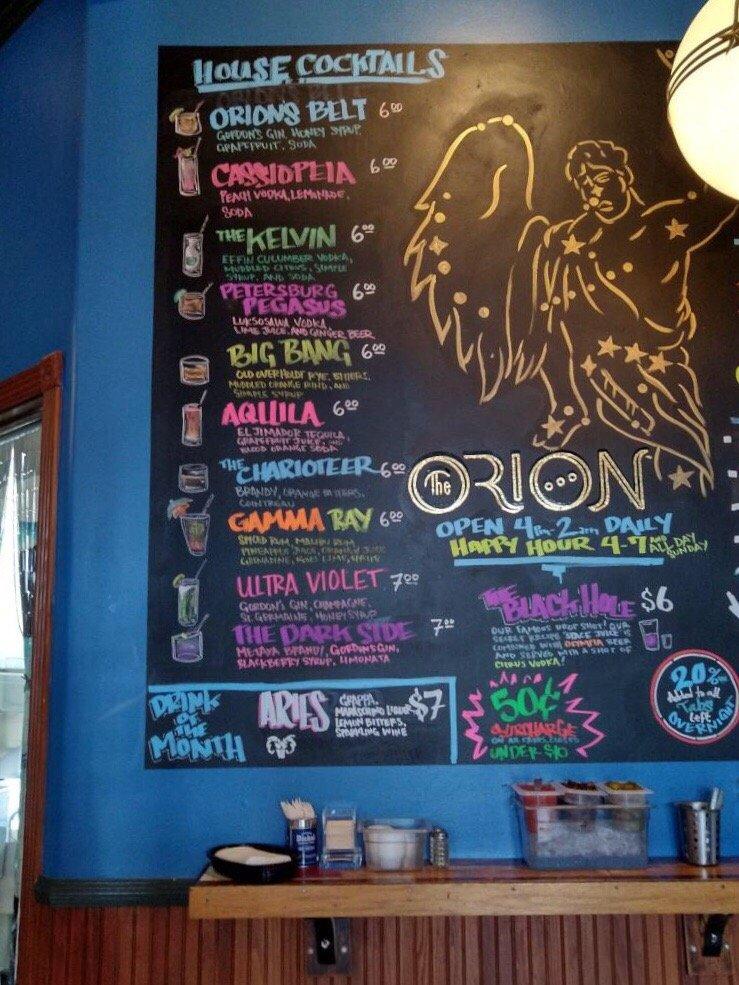 HOUSE COCKTAILS
ORION'S BELT 6.00
GORDON'S GIN, HONEY SYRUP,
GRAPEFRUIT, SODA
CASSIOPEIA 6.00
PEACH VODKA, LEMONADE,
SODA
THE KELVIN 6.00
EFFIN CUCUMBER VODKA,
MUDDLED CITRUS, SIMPLE
SYRUP, AND SODA
PETERSBURG
PEGASUS 6.00
LUKSOSAWA VODKA,
LIME JUICE, AND GINGER BEER
BIG BANG 6.00
OLD OVERHOLDT RYE, BITTERS,
MUDDLED ORANGE RIND, AND
SIMPLE SYRUP
AQUILA 6.00
EL JIMADOR TEQUILA,
GRAPEFRUIT JUICE, AND
BLOOD ORANGE SODA
THE CHARIOTEER 6.00
BRANDY, ORANGE BITTERS,
COINTREAU
GAMMA RAY 6.00
SPICED RUM, MALIBU RUM,
PINEAPPLE JUICE, ORANGE JUICE
GRENADINE, ROSE'S LIME, SPRITE
ULTRA VIOLET 7.00
GORDON'S GIN, CHAMPAGNE,
ST. GERMAINE, HONEY SYRUP
THE DARK SIDE 7.00
METAXA BRANDY, GORDON'S GIN,
BLACKBERRY SYRUP, LIMONATA
DRINK
OF THE
MONTH
ARIES $7
GRAPPA,
MARASCHINO LIQUEUR
LEMON BITTERS,
SPARKLING WINE
The ORION
OPEN 4pm-2am DAILY
HAPPY HOUR 4-7 AND ALL DAY SUNDAY
THE BLACK HOLE $6
OUR FAMOUS DROP SHOT! OUR
SECRET RECIPE SPACE JUICE IS
COMBINED WITH OLYMPIA BEER
AND SERVED WITH A SHOT OF
CITRUS VODKA!
50¢
SURCHARGE
UNDER $10
20%
Added to all
Tabs
Left
OVERNIGHT